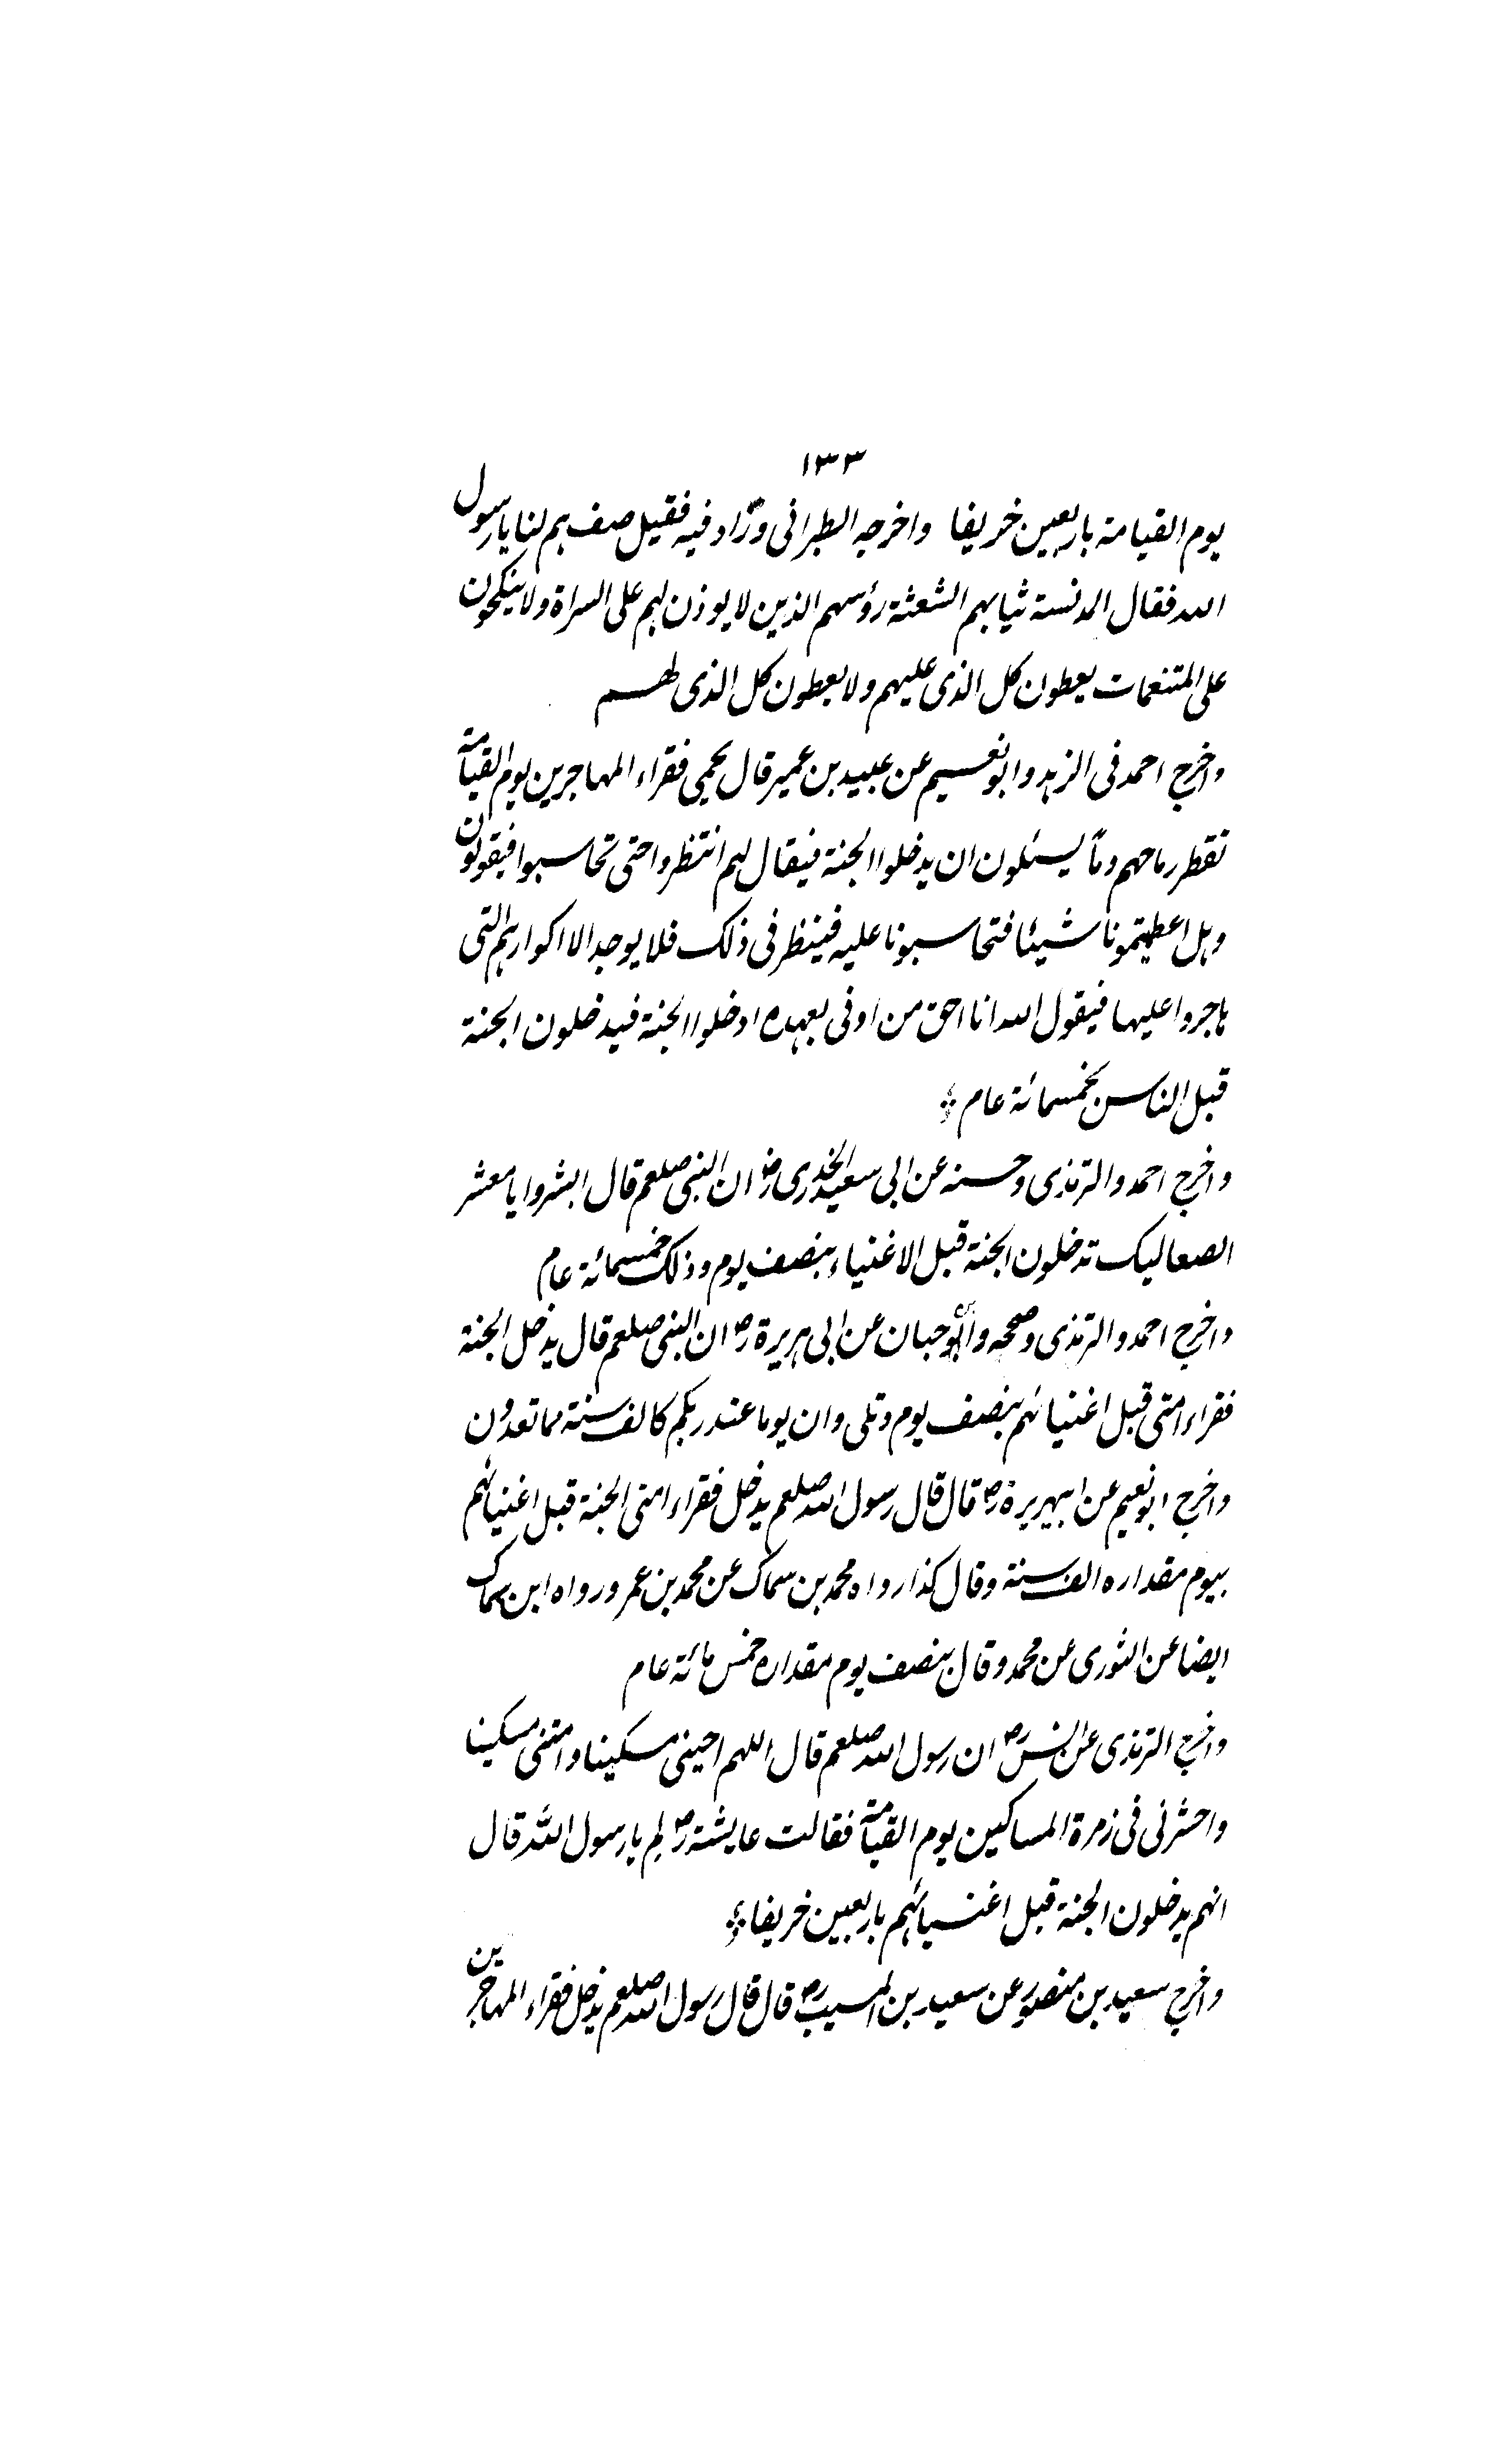 ١٣٣
يوم القيامة باربعين خريفا واخرجه الطبرانى وزاد فيه فقيل صف هم لنا يا رسول
الله فقال المدنسة ثيابهم الشعثة رؤسهم الذين لا يوذن لهم على السراة ولا ينكحون
على المتنعمات يعطون كل الذى عليهم ولا يعطون كل الذى لهم
واخرج احمد فى الزهد وابو نعيم عن عبيد بن عمير قال يحيى فقراء المهاجرين يوم القيامة
تقطر رماحهم دماً يسئلون ان يدخلوا الجنة فيقال لهم انتظروا حتى تحاسبوا فيقولون
وهل اعطيتمونا شيئا فتحاسبونا عليه فينظر فى ذلك فلا يوجد الا اكوارهم التى
هاجروا عليها فيقول الله انا احق من اوفى بعهده ادخلوا الجنة فيدخلون الجنة
قبل الناس بخمسمائة عام
واخرج احمد والترمذى وحسنه عن ابى سعيد الخدرى رض ان النبى صلعم قال ابشروا يا معشر
الصعاليك تدخلون الجنة قبل الاغنياء بنصف يوم وذلك خمسمائة عام
واخرج احمد والترمذى وصححه وابو حبان عن ابى هريرة رض ان النبى صلعم قال يدخل الجنة
فقراء امتى قبل اغنيائهم بنصف يوم وتلى وان يوما عند ربكم كالف سنة مما تعدون
واخرج ابو نعيم عن ابيهريرة رض قال قال رسول الله صلعم يدخل فقراء امتى الجنة قبل اغنيائهم
بيوم مقداره الف سنة وقال كذا رواه محمد بن سماك عن محمد بن عمر ورواه ابن سماك
ايضا عن الثورى عن محمد وقال بنصف يوم مقداره خمس مائة عام
واخرج الترمذى عن انس رض ان رسول الله صلعم قال اللهم احينى مسكينا وامتنى مسكينا
واحشرنى فى زمرة المساكين يوم القيامة فقالت عايشة رض لم يا رسول الله قال
انهم يدخلون الجنة قبل اغنيائهم باربعين خريفا
واخرج سعيد بن منصور عن سعيد بن المسيب رض قال قال رسول الله صلعم يدخل فقراء المهاجرين